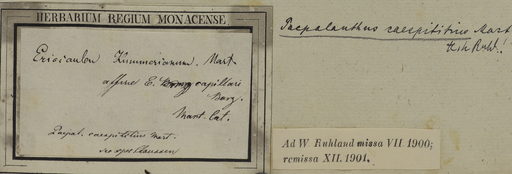 HERBARIUM REGIUM MONACENSE
Eriocaulon Zuccarianum. Mart.
affine E. capillari
Bong.
Mart. Cat.
Paepal. caespititius Mart.
Paepalanthus caespititius Mart
Ruhl!
Ad W. Ruhland missa VII. 1900;
remissa XII. 1901.